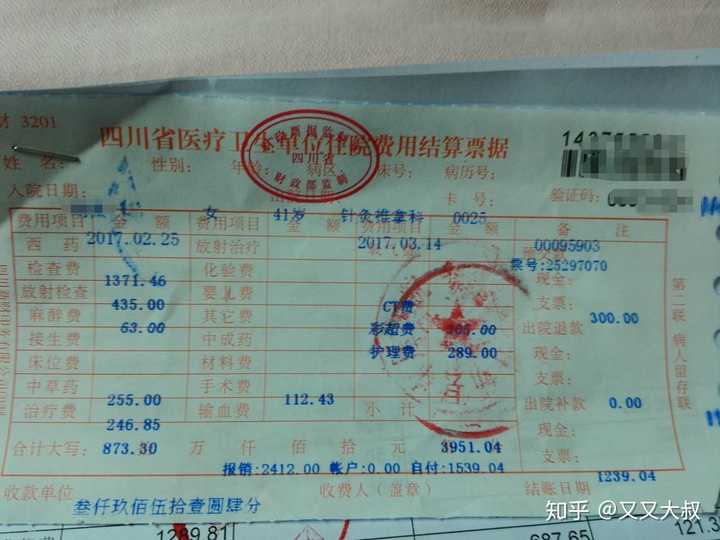 财 3201
四川省医疗卫生单位住院费用结算票据
四川省
财政部监制
姓名: 性别: 年龄: 病区: 床号: 病历号:
入院日期: 出院日期: 卡号: 验证码:
女 41岁 针灸推拿科 0025
费用项目 金额 费用项目 金额 金额 备注
2017.02.25 2017.03.14 00095903
西药 放射治疗
票号:25297070
检查费 化验费 现金:
1371.46
放射检查 婴儿费 CT费 支票:
435.00 300.00
麻醉费 其它费 彩超费 出院退款
63.00 305.00
接生费 中成药 护理费 289.00 现金:
床位费 材料费 支票:
中草药 手术费
255.00 112.43 0.00
治疗费 输血费 小计 出院补款
246.85 现金:
合计大写: 873.30 万仟佰拾元 3951.04 支票:
报销:2412.00 帐户:0.00 自付:1539.04
1239.04
收款单位 收费人(盖章) 结账日期
叁仟玖佰伍拾壹圆肆分
第二联 病人留存联
1289.81
687.65
121.3
知乎 @又又大叔